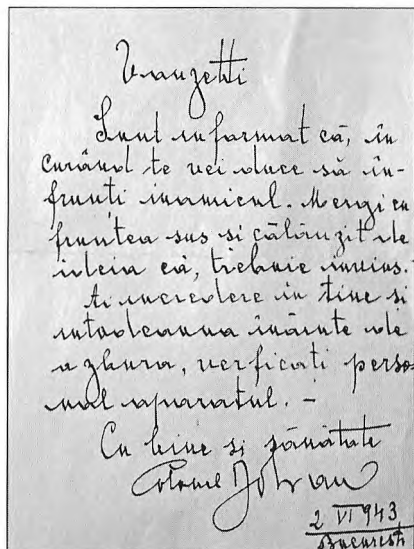 Vranzetti
Sunt informat că, în
curând te vei duce să în-
frunți inamicul. Mergi cu
fruntea sus si călăuzit de
ideia că, trebuie invins.-
Ai incredere in tine si
intodeauna înainte de
a zbura, verficati perso-
nal aparatul. -
Cu bine si sănătate
Colonel
2 VI 943
Bucuresti